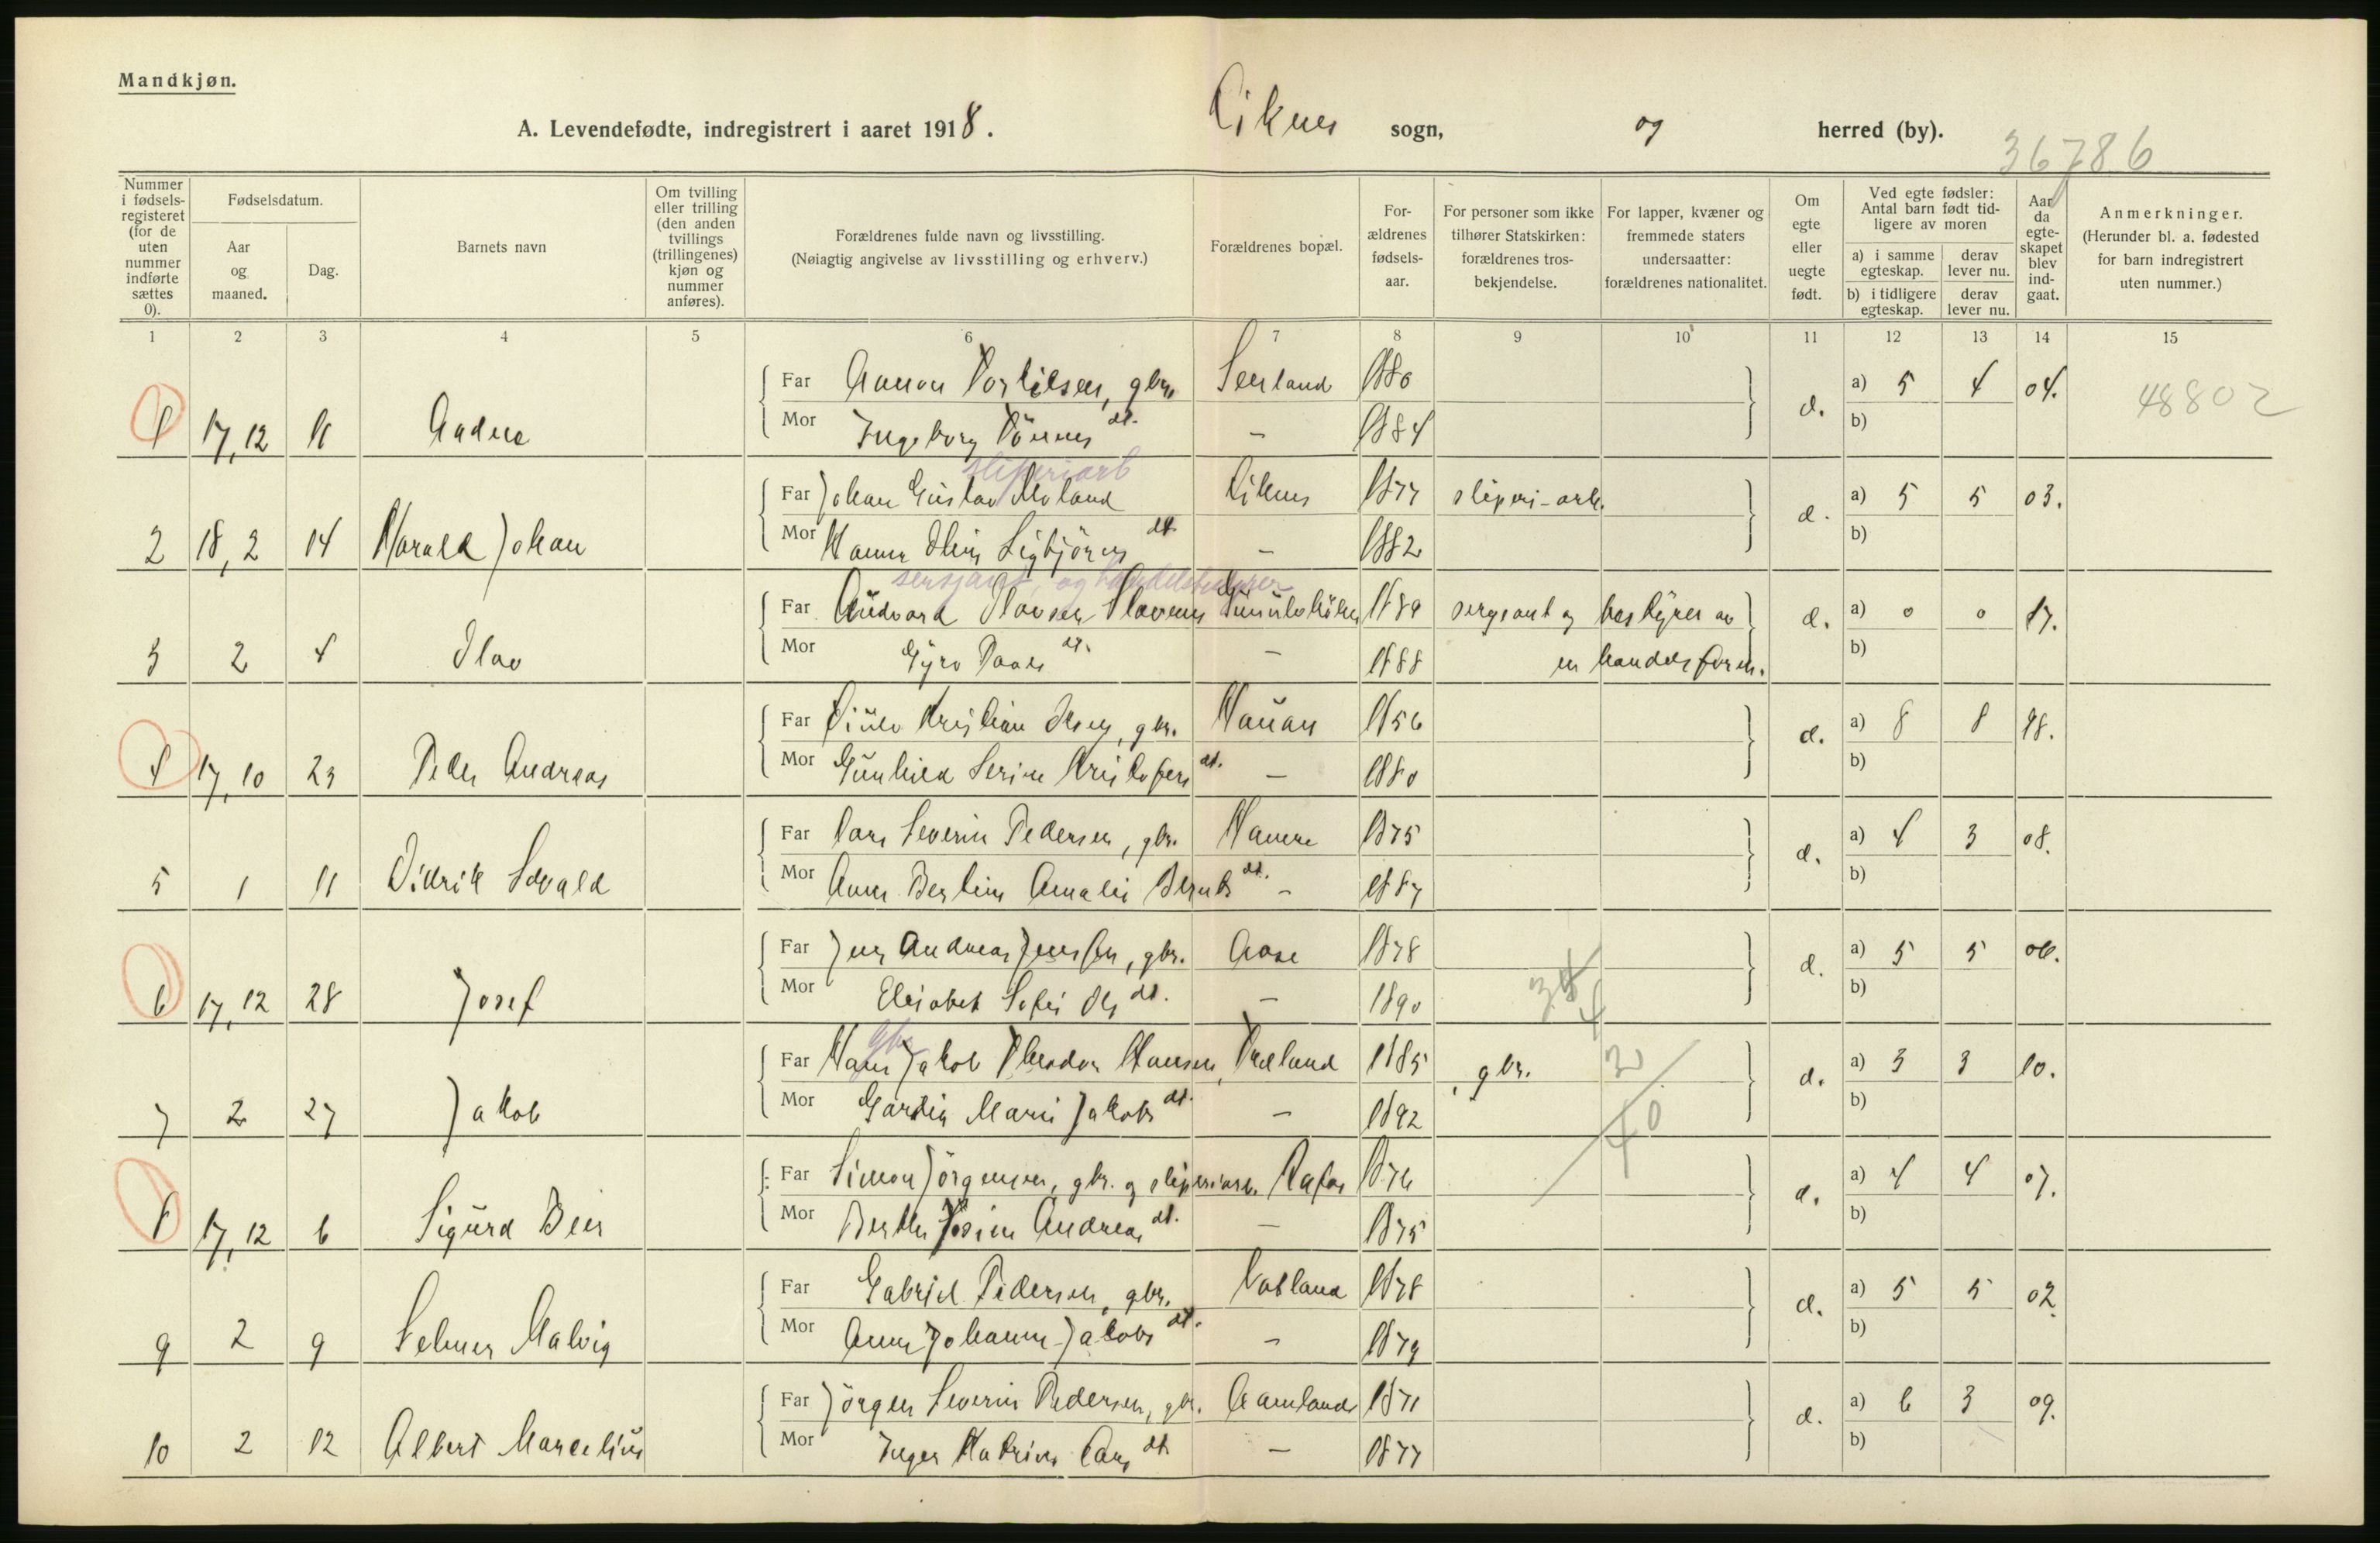 Mandkjøn.
A. Levendefødte, indregistrert i aaret 1918. Liknes sogn, og herred (by).
36786
Nummer i fødselsregisteret (for de uten nummer indførte sættes 0).
Fødselsdatum.
Aar og maaned.
Dag.
Barnets navn
Om tvilling eller trilling (den anden tvillings (trillingenes) kjøn og nummer anføres).
Forældrenes fulde navn og livsstilling.
(Nøiagtig angivelse av livsstilling og erhverv.)
Forældrenes bopæl.
Forældrenes fødselsaar.
For personer som ikke tilhører Statskirken: forældrenes trosbekjendelse.
For lapper, kvæner og fremmede staters undersaatter: forældrenes nationalitet.
Om egte eller uegte født.
Ved egte fødsler: Antal barn født tidligere av moren
a) i samme egteskap.
derav lever nu.
b) i tidligere egteskap.
derav lever nu.
Aar da egteskapet blev indgaat.
Anmerkninger.
(Herunder bl. a. fødested for barn indregistrert uten nummer.)
1 2 3 4 5 6 7 8 9 10 11 12 13 14 15
Far gbr. 1880 a) 5 4 04. 48802
1 17,12 11 Mor Ingeborg Tönnes dt. - 1884 d. b)
sliperiarb
Far Johan Gustav Moland Liknes 1877 sliperi-arb. a) 5 5 03.
2 18,2 14 Harald Johan Mor Hanna Oline Sigbjörns dt. - 1882 d. b)
sersjant, og handelsbestyrer
Far Olavsen 1889 sergeant og bestyrer av a) 0 0 17.
3 2 4 Olav Mor Gyro dt. - 1888 en handelsforen. d. b)
Far Kristian gbr. Haugan 1856 a) 8 8 98.
4 17,10 23 Peder Andreas Mor Gunhild Serine Kristofers dt. - 1880 d. b)
Far Lars Severin Pedersen, gbr. 1875 a) 4 3 08.
5 1 11 Didrik Sevald Mor Anna Bertine Amalie Bernts dt. - 1887 d. b)
Far Jens Andreas Jensen, gbr. Aase 1878 a) 5 5 06.
6 17,12 28 Josef Mor Elisabet Sofie Ols dt. - 1890 d. b)
gbr
Far Hans Jakob Theodor Hansen, Træland 1885 , gbr. a) 3 3 10.
7 2 27 Jakob Mor Marie Jakobs dt. - 1892 d. b)
Far Simon Jörgensen, gbr. og sliperiarb. Rafos 1876 a) 4 4 07.
8 17,12 6 Sigurd Mor Andreas dt. - 1875 d. b)
Far Gabriel Pedersen, gbr. 1878 a) 5 5 02.
9 2 9 Selmer Malvig Mor Anna Johanna Jakobs dt. - 1879 d. b)
Far Jörgen Severin Pedersen, gbr. Aamland 1871 a) 6 3 09.
10 2 12 Albert Marcelius Mor Inger Katrine Lars dt. - 1877 d. b)